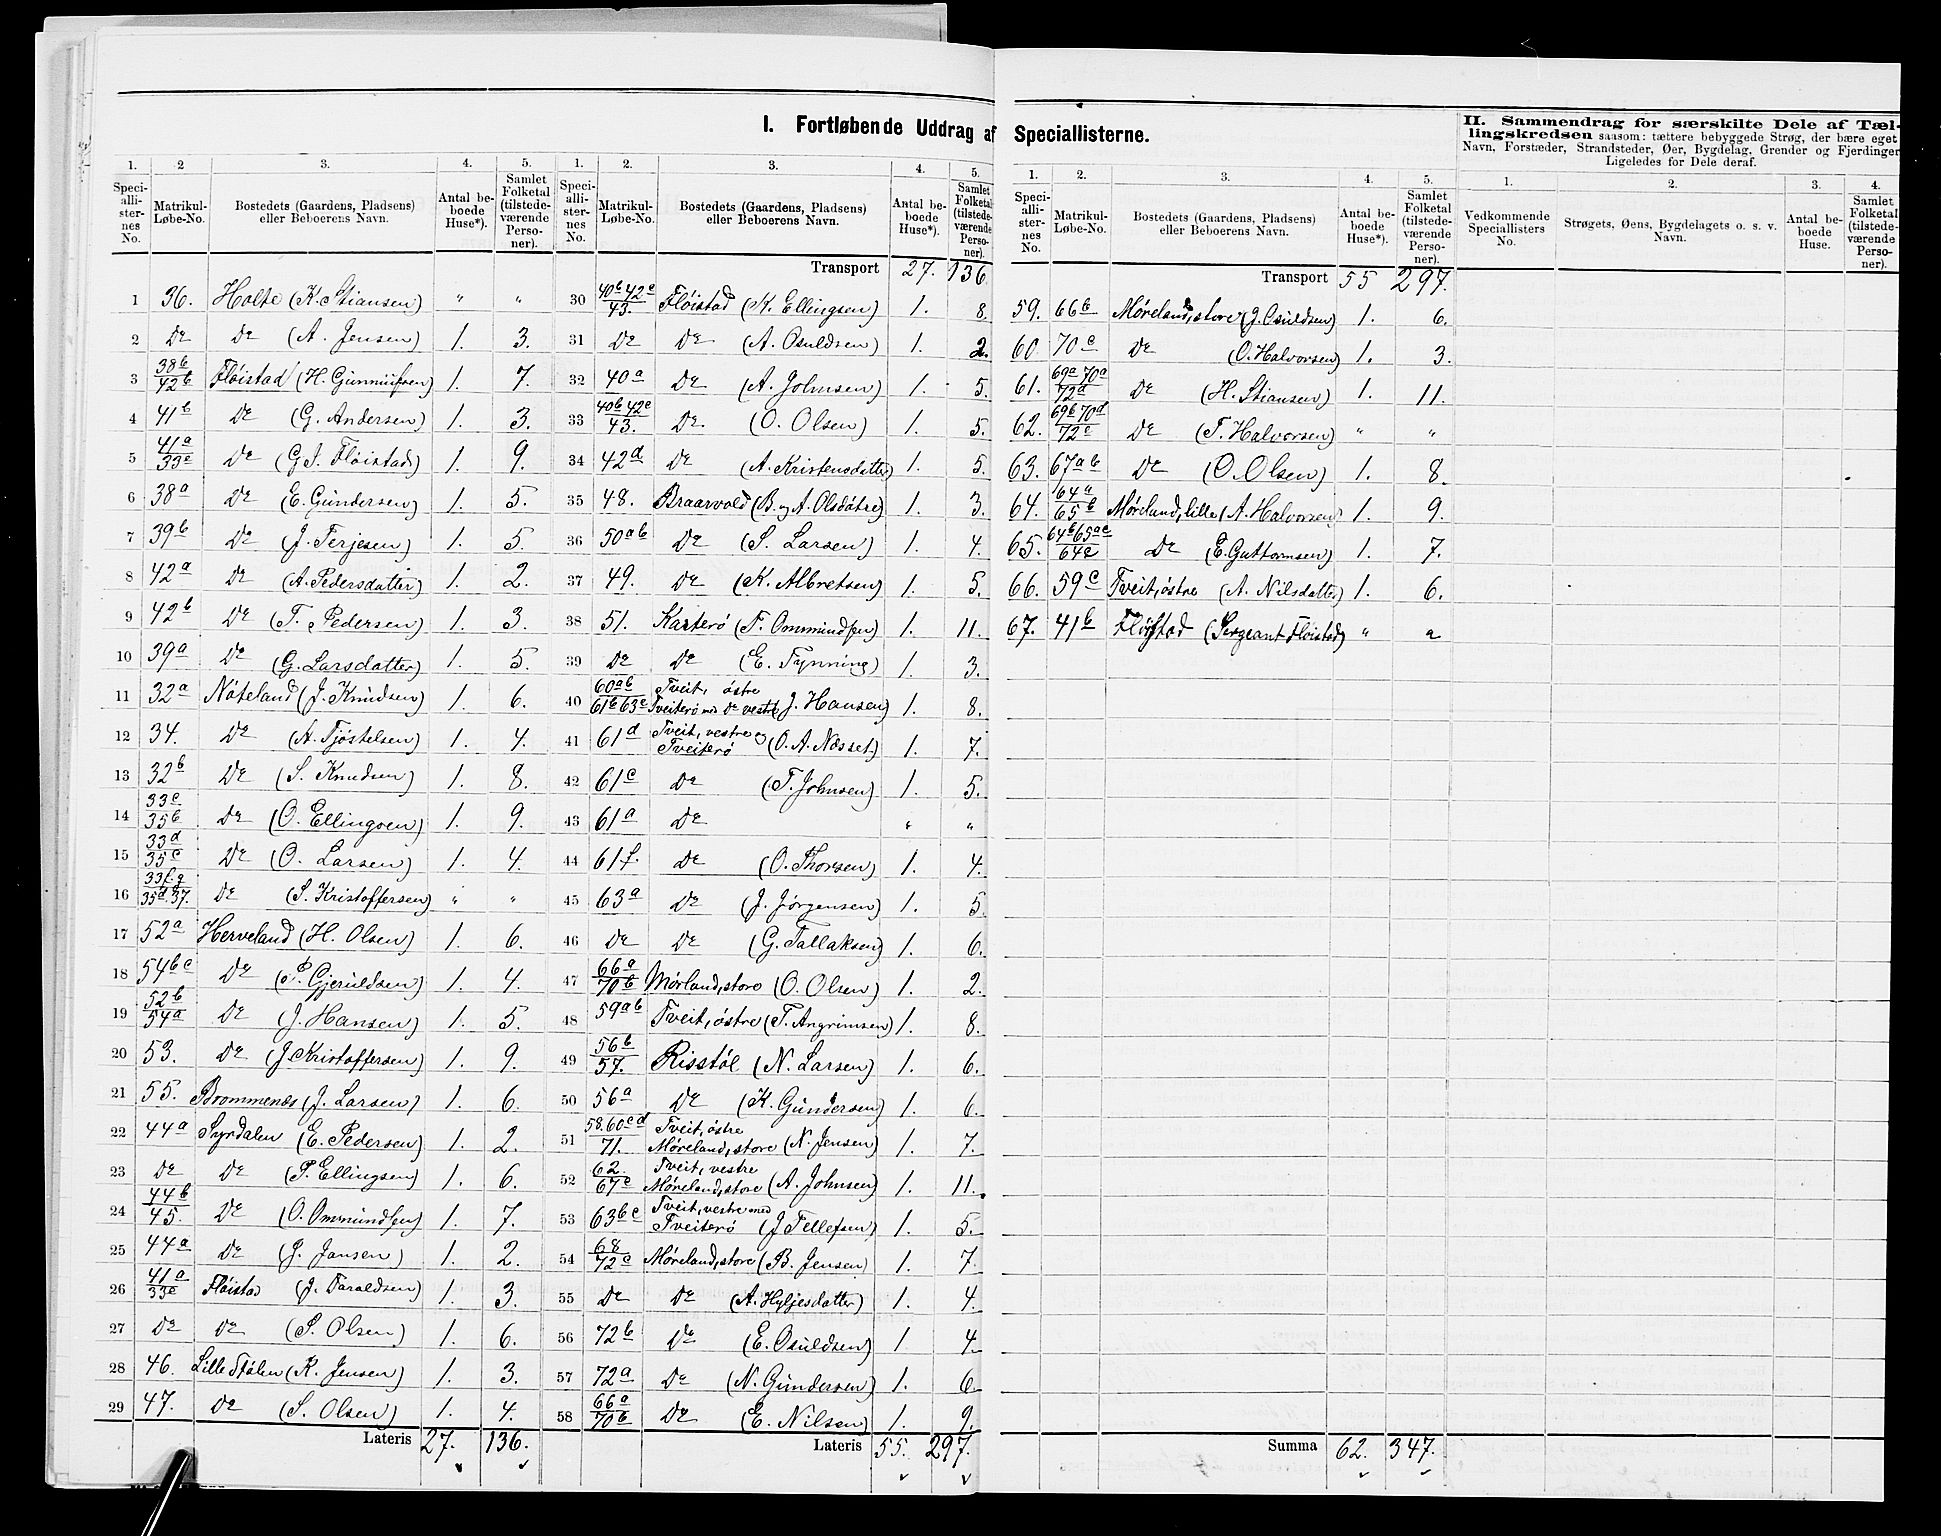 I. Fortløbende Uddrag af Speciallisterne.
II. Sammendrag for særskilte Dele af Tæl-
lingskredsen saasom: tættere bebyggede Strøg, der bære eget
Navn, Forstæder, Strandsteder, Øer, Bygdelag, Grender og Fjerdinger
Ligeledes for Dele deraf.
1. 2 3. 4. 5.
Speci-allister-nes No. Matrikul-Løbe-No. Bostedets (Gaardens, Pladsens) eller Beboerens Navn. Antal be-boede Huse*). Samlet Folketal (tilstede-værende Perso-ner).
1 36. Holte (K. Stiansen) " "
2 Do Do (A. Jensen) 1. 3.
3 38b/42b Fløistad (H. Gunnufsen) 1. 7.
4 41b Do (G. Andersen) 1. 3.
5 41a/33e Do (G. J. Fløistad) 1. 9.
6 38a Do (E. Gundersen) 1. 5.
7 39b Do (J. Terjesen) 1. 5.
8 42a Do (A. Pedersdatter) 1. 2.
9 42b Do (T. Pedersen) 1. 3.
10 39a Do (G. Larsdatter) 1. 5.
11 32a Nøteland (J. Knudsen) 1. 6.
12 34. Do (A. Tjøstelsen) 1. 4.
13 32b Do (S. Knudsen) 1. 8.
14 33c/35b Do (O. Ellingsen) 1. 9.
15 33d/35c Do (O. Larsen) 1. 4.
16 33f.g/35d.37. Do (S. Kristoffersen) " "
17 52a Herveland (H. Olsen) 1. 6.
18 54bc Do (P. Gjeruldsen) 1. 4.
19 52b/54a Do (J. Hansen) 1. 5.
20 53. Do (J. Kristoffersen) 1. 9.
21 55. Brommenæs (J. Larsen) 1. 6.
22 44a Syrdalen (E. Pedersen) 1. 2.
23 Do Do (P. Ellingsen) 1. 6.
24 44b/45. Do (O. Ommundsen) 1. 7.
25 44a Do (J. Jansen) 1. 2.
26 41a/33e Fløistad (J. Taraldsen) 1. 3.
27 Do Do (S. Olsen) 1. 6.
28 46. Lille Stølen (K. Jensen) 1. 3.
29 47. Do (S. Olsen) 1. 4.
Lateris 27. 136.
1. 2. 3. 4. 5.
Speci-allister-nes No. Matrikul-Løbe-No. Bostedets (Gaardens, Pladsens) eller Beboerens Navn. Antal be-boede Huse*). Samlet Folketal (tilstede-værende Perso-ner).
Transport 27. 136
30 40b 42e/43. Fløistad (K. Ellingsen) 1. 8.
31 Do Do (A. Osuldsen) 1. 2.
32 40a Do (A. Johnsen) 1. 5.
33 40b 42e/43. Do (O. Olsen) 1. 5.
34 42d Do (A. Kristensdatter) 1. 5.
35 48. Braarvold (B. og A. Olsdøtre) 1. 3.
36 50ab Do (S. Larsen) 1. 4.
37 49. Do (K. Albretsen) 1. 5.
38 51. Kasterø (F. Ommundsen) 1. 11.
39 Do Do (E. Tynning) 1. 3.
40 60ab/61b63c Tveit, østre Tveiterø med Do vestre (J. Hansen) 1. 8.
41 61d Tveit, vestre og Tveiterø (O. A. Næsset) 1. 7.
42 61c Do (T. Johnsen) 1. 5.
43 61a Do " "
44 61f. Do (O. Thorsen) 1. 4.
45 63a Do (J. Jørgensen) 1. 5.
46 Do Do (G. Tallaksen) 1. 6.
47 66a/70b Mørland, store (O. Olsen) 1. 2.
48 59ab Tveit, østre (T. Angrimsen) 1. 8.
49 56b/57. Risstøl (N. Larsen) 1. 6.
50 56a Do (K. Gundersen) 1. 6.
51 58.60cd/71. Tveit, østre Møreland, store (N. Jensen) 1. 7.
52 62./67c Tveit, vestre Møreland, store (A. Johnsen) 1. 11.
53 63bc Tveit, vestre med Tveiterø (J. Tellefsen) 1. 5.
54 68/72c Møreland, store (B. Jensen) 1. 7.
55 Do Do (A. Hyljesdatter) 1. 4.
56 72b Do (E. Osuldsen) 1. 4.
57 72a Do (N. Gundersen) 1. 6.
58 66a/70b Do (E. Nilsen) 1. 9.
Lateris 55. 297.
1. 2. 3. 4. 5.
Speci-allister-nes No. Matrikul-Løbe-No. Bostedets (Gaardens, Pladsens) eller Beboerens Navn. Antal be-boede Huse*). Samlet Folketal (tilstede-værende Perso-ner).
Transport 55 297.
59. 66b Møreland, store (J. Osuldsen) 1. 6.
60 70c Do (O. Halvorsen) 1. 3.
61. 69a 70a/72a Do (H. Stiansen) 1. 11.
62. 69b 70d/72c Do (T. Halvorsen) " "
63. 67ab Do (O. Olsen) 1. 8.
64. 64a/65b Møreland, lille (A. Halvorsen) 1. 9.
65. 64b65ac/64c Do (E. Guttormsen) 1. 7.
66. 59c Tveit, østre (A. Nilsdatter) 1. 6.
67. 41b Fløistad (Sergeant Fløistad) " "
Summa 62. 347.
1. 2. 3. 4.
Vedkommende Speciallisters No. Strøgets, Øens, Bygdelagets o. s. v. Navn. Antal be-boede Huse. Samlet Folketal (tilstede-værende Perso-ner).